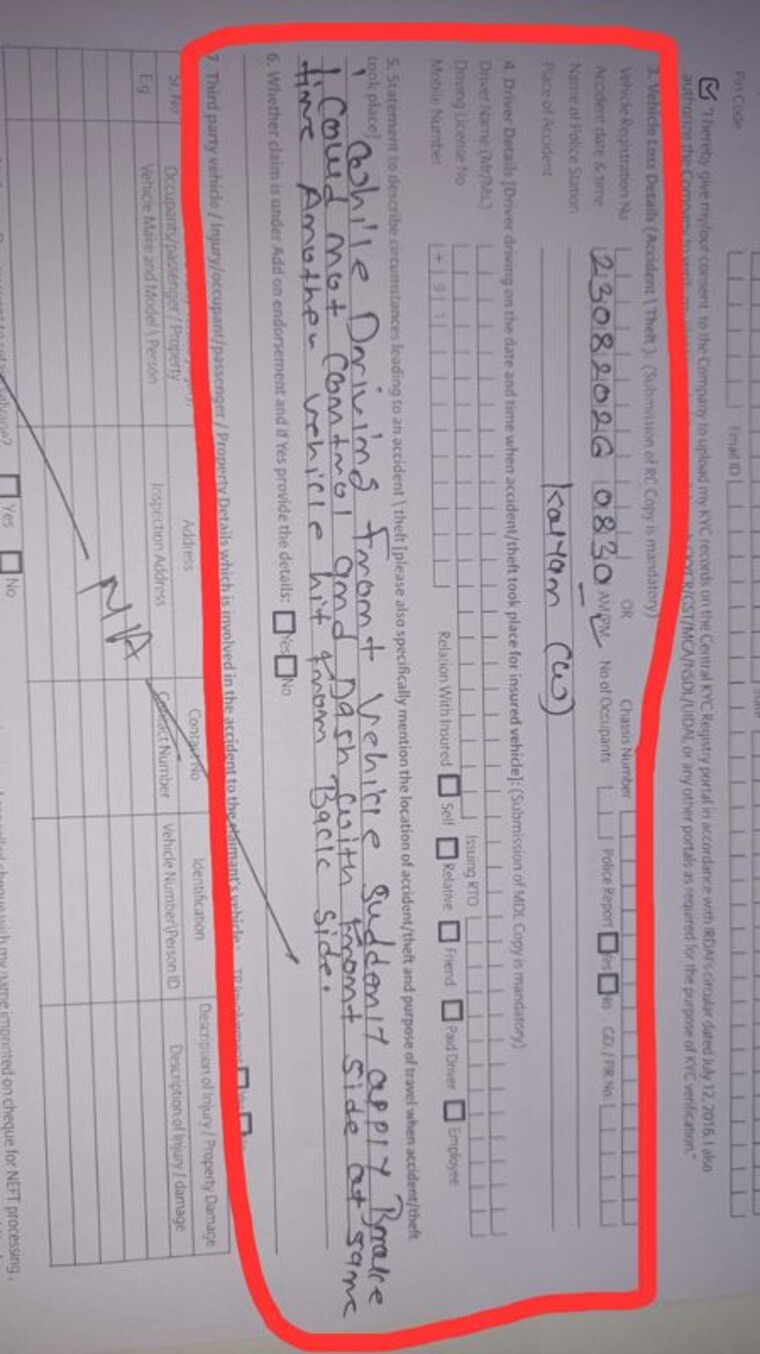 Pin Code
Email ID
"I hereby give my/our consent to the Company to upload my KYC records on the Central KYC Registry portal in accordance with IRDAI's circular dated July 12, 2016. I also
authorize the Company to CKYCR/GST/MCA/NSDL/UIDAI, or any other portals as required for the purpose of KYC verification."
3. Vehicle Loss Details (Accident \ Theft ): (Submission of RC Copy is mandatory)
Vehicle Registration No OR Chassis Number
Accident date & time 23082026 0830 AM/PM No of Occupants Police Report Yes No GD / FIR No.
Name of Police Station
Place of Accident Kalyan (W)
4. Driver Details [Driver driving on the date and time when accident/theft took place for insured vehicle]: (Submission of MDL Copy is mandatory)
Driver Name (Mr/Ms.)
Driving License No Issuing RTO
Mobile Number +91 Relation With Insured Self Relative Friend Paid Driver Employee
5. Statement to describe circumstances leading to an accident \ theft [please also specifically mention the location of accident/theft and purpose of travel when accident/theft
took place]
While Driving front vehicle suddenly apply Brake
I could not control and Dash with front side at same
time Another vehicle hit from Back side.
6. Whether claim is under Add on endorsement and if Yes provide the details: Yes No
7. Third party vehicle / Injury/occupant/passenger / Property Details which is involved in the accident to the claimant's vehicle:
Sr. No Occupants/passenger / Property Address Contact No Identification Description of Injury / Property Damage
E.g Vehicle Make and Model \ Person Inspection Address Contact Number Vehicle Number\Person ID Description of Injury / damage
NA
Yes No
cheque with my name imprinted on cheque for NEFT processing.